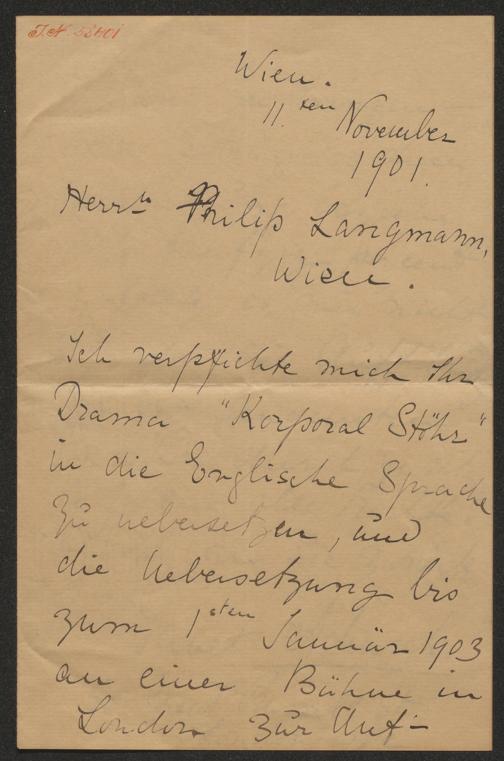 J.N. 53401
Wien.
11. ten November
1901.
Herrn Philip Langmann,
Wien.
Ich verpflichte mich Ihr
Drama "Korporal Stöhr"
in die Englische Sprache
zu uebersetzen, und
die Uebersetzung bis
zum 1sten Januar 1903
an einer Bühne in
London zur Auf-